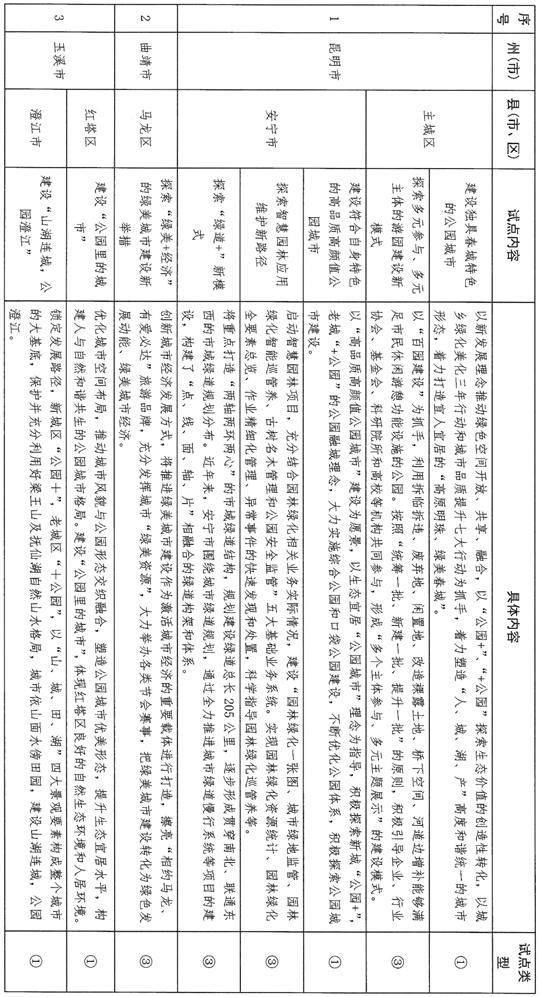 序号
州(市)
县(市、区)
试点内容
具体内容
试点类型
1
昆明市
主城区
建设独具春城特色的公园城市
以新发展理念推动绿色空间开放、共享、融合，以“公园+”、“+公园”探索生态价值的创造性转化，以城
乡绿化美化三年行动和城市品质提升七大行动为抓手，着力塑造“人、城、湖、产”高度和谐统一的城市
形态，着力打造宜人宜居的“高原明珠、绿美春城”。
①
探索多元参与、多元主体的游园建设新模式
以“百园建设”为抓手，利用拆临拆违、废弃地、闲置地、改造裸露土地、桥下空间、河道边增补能够满
足市民休闲游憩功能设施的公园。按照“统筹一批、新建一批、提升一批”的原则，积极引导企业、行业
协会、基金会、科研院所和高校等机构共同参与，形成“多个主体参与、多元主题展示”的建设模式。
③
安宁市
建设符合自身特色的高品质高颜值公园城市
以“高品质高颜值公园城市”建设为愿景，以生态宜居“公园城市”理念为指导，积极探索新城“公园+”，
老城“+公园”的公园融城理念，大力实施综合公园和口袋公园建设，不断优化公园体系，积极探索公园城
市建设。
①
探索智慧园林应用维护新路径
启动智慧园林项目，充分结合园林绿化相关业务实际情况，建设“园林绿化一张图、城市绿地监管、园林
绿化智能巡管养、古树名木管理和公园安全监管”五大基础业务系统。实现园林绿化资源统计、园林绿化
全要素总览、作业精细化管理、异常事件的快速发现和处置，科学指导园林绿化巡管养等。
③
探索“绿道+”新模式
将重点打造“两轴两环两心”的市域绿道结构，规划建设绿道总长205公里，逐步形成贯穿南北、联通东
西的市域绿道规划分布。近年来，安宁市围绕城市绿道规划，通过全力推进城市绿道慢行系统等项目的建
设，构建了“点、线、面、轴、片”相融合的绿道构架和体系。
③
2
曲靖市
马龙区
探索“绿美+经济”的绿美城市建设新举措
创新城市经济发展方式，将推进绿美城市建设作为激活城市经济的重要载体进行打造，擦亮“相约马龙、
有爱必达”旅游品牌，充分发挥城市“绿美资源”，大力举办各类节会赛事，把绿美城市建设转化为绿色发
展动能、绿美城市经济。
③
3
玉溪市
红塔区
建设“公园里的城市”
优化城市空间布局，推动城市风貌与公园形态交织融合，塑造公园城市优美形态，提升生态宜居水平，构
建人与自然和谐共生的公园城市格局。建设“公园里的城市”，体现红塔区良好的自然生态环境和人居环境。
①
澄江市
建设“山湖连城，公园澄江”
锁定发展路径，新城区“公园十”，老城区“十公园”，以“山、城、田、湖”四大景观要素构成整个城市
的大基底，保护并充分利用好梁王山及抚仙湖自然山水格局，城市依山面水傍田园，建设山湖连城，公园
澄江。
①